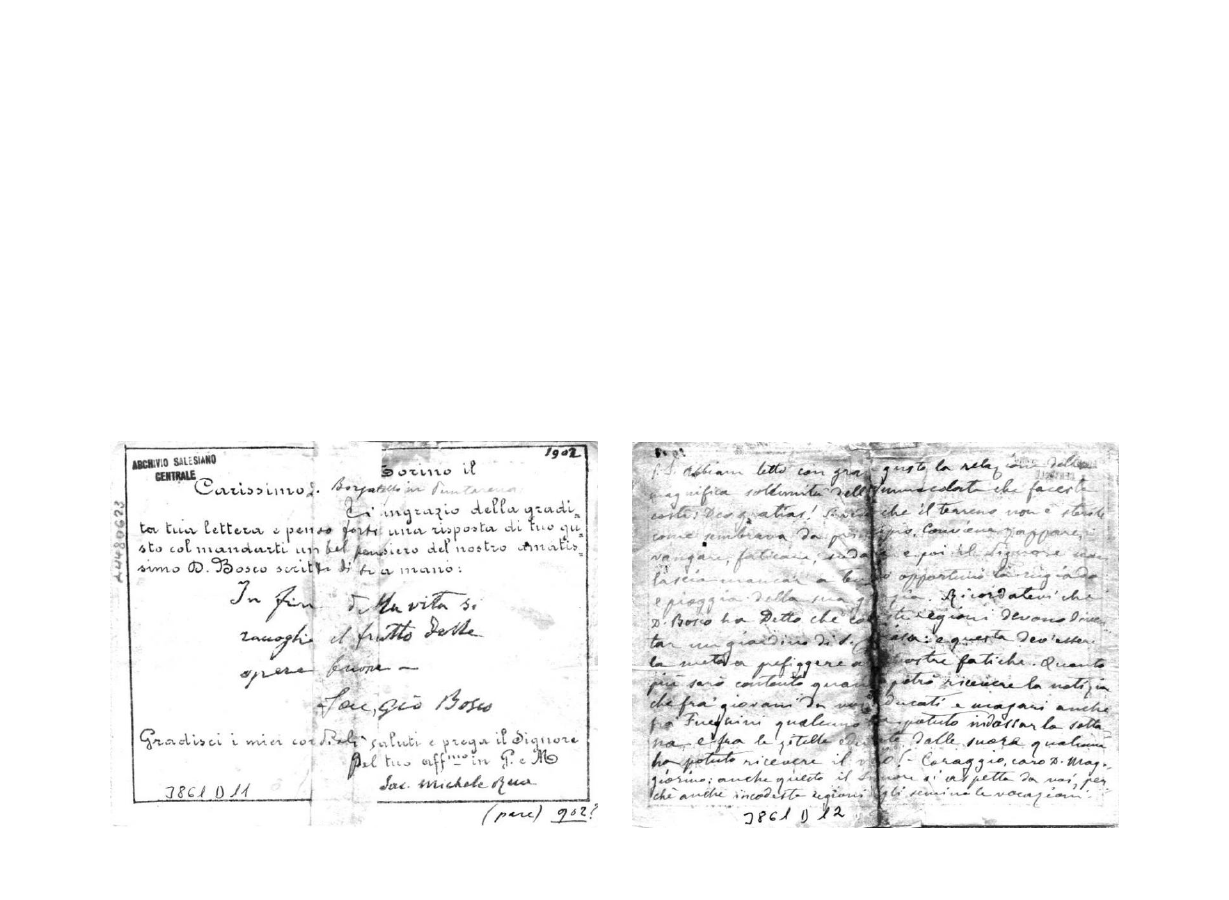 1902
ARCHIVIO SALESIANO
CENTRALE
Torino il
Carissimo D. Borgatello in Puntarenas
Ti ringrazio della gradi=
ta tua lettera e penso farti una risposta di tuo gu=
sto col mandarti un bel pensiero del nostro amatis=
simo D. Bosco scritto di sua mano:
In fin della vita si
raccoglie il frutto delle
opere buone
Sac. Gio Bosco
Gradisci i miei cordiali saluti e prega il Signore
pel tuo aff.mo in G. e M
Sac. Michele Rua
3861 D 11
(pare) 902?
24480623
P.S. Abbiam letto con gran gusto la relazione della
magnifica solennità dell'Immacolata che faceste
costì: Deo gratias! che il terreno non è sterile
come sembrava da principio. Conviene zappare,
vangare, faticare, sudare e poi il Signore non
lascia mancar a tempo opportuno la rugiada
e pioggia della sua grazia. Ricordatevi che
D. Bosco ha detto che coteste regioni devono diven-
tar un giardino di e questa dev'essere
la meta a prefiggere a vostre fatiche. Quanto
più sarò contento quando potrò ricevere la notizia
che fra i giovani da voi educati e magari anche
fra Fueghini qualcuno ha potuto indossar la sotta
na e fra le zitelle educate dalle suore qualcuna
ha potuto ricevere il velo! - Coraggio, caro D. Mag-
giorino; anche questo il Signore si aspetta da voi, per
chè anche in codeste regioni egli semina le vocazioni.
3861 D 12